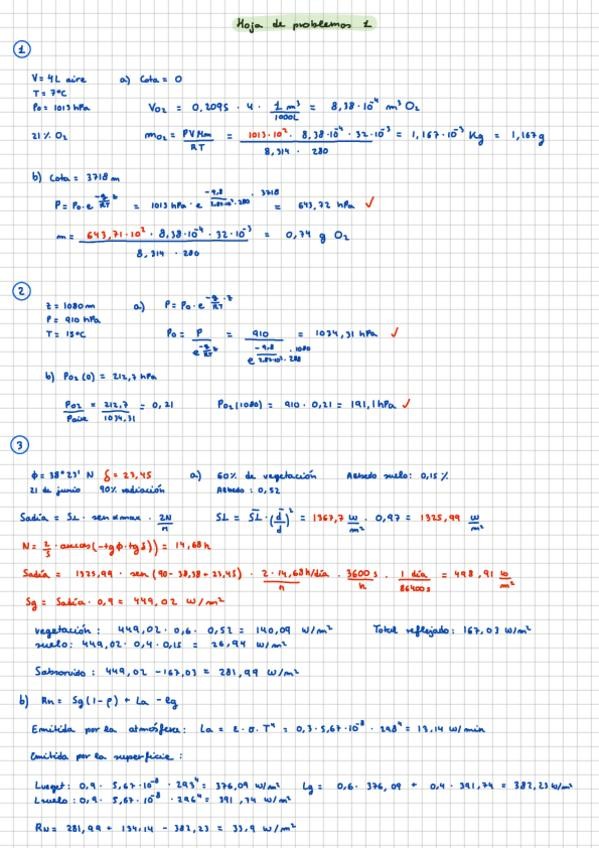 Hoja de problemas 1
1
V = 4L aire a) Cota = 0
T = 7ºC
P₀ = 1013 hPa V₀₂ = 0,2095 · 4 · 1 m³/1000L = 8,38·10⁻⁴ m³ O₂
21% O₂ m₀₂ = PVMm/RT = 1013·10² · 8,38·10⁻⁴ · 32·10⁻³/8,314 · 280 = 1,167·10⁻³ Kg = 1,167g
b) Cota = 3718 m
P = P₀ · e^(-g/RT · z) = 1013 hPa · e^(-9,8/2.87·10³·280 · 3718) = 643,72 hPa ✓
m = 643,71·10² · 8,38·10⁻⁴ · 32·10⁻³/8,314 · 280 = 0,74 g O₂
2
z = 1080 m a) P = P₀ · e^(-g/RT · z)
P = 910 hPa
T = 15ºC P₀ = P/e^(-g/RT) = 910/e^(-9,8/2.87·10³·288 · 1080) = 1034,31 hPa ✓
b) P₀₂(0) = 212,7 hPa
P₀₂/Paire = 212,7/1034,31 = 0,21 P₀₂(1080) = 910 · 0,21 = 191,1 hPa ✓
3
ϕ = 38º23' N δ = 23,45 a) 60% de vegetación Albedo suelo: 0,15 %
21 de junio 90% radiación Albedo: 0,52
Sadía = SL · sen αmax · 2N/π SL = S̄L · (d̄/d)² = 1367,7 W/m² · 0,97 = 1325,99 W/m²
N = 2/15 · arccos(-tgϕ·tgδ)) = 14,68h
Sadía = 1325,99 · sen (90 - 38,38 + 23,45) · 2·14,68h/día/π · 3600s/h · 1 día/86400s = 498,91 W/m²
Sg = Sadía · 0,9 = 449,02 W/m²
vegetación: 449,02 · 0,6 · 0,52 = 140,09 W/m² Total reflejado: 167,03 W/m²
suelo: 449,02 · 0,4 · 0,15 = 26,94 W/m²
Sabsorvido: 449,02 - 167,03 = 281,99 W/m²
b) Rn = Sg(1-ρ) + La - Lg
Emitida por la atmósfera: La = ε · σ · T⁴ = 0,3 · 5,67·10⁻⁸ · 298⁴ = 13,14 W/min
Emitida por la superficie:
Lveget: 0,9 · 5,67·10⁻⁸ · 293⁴ = 376,09 W/m² Lg = 0,6 · 376,09 + 0,4 · 391,74 = 382,23 W/m²
Lsuelo: 0,9 · 5,67·10⁻⁸ · 296⁴ = 391,74 W/m²
Rn = 281,99 + 134,14 - 382,23 = 33,9 W/m²